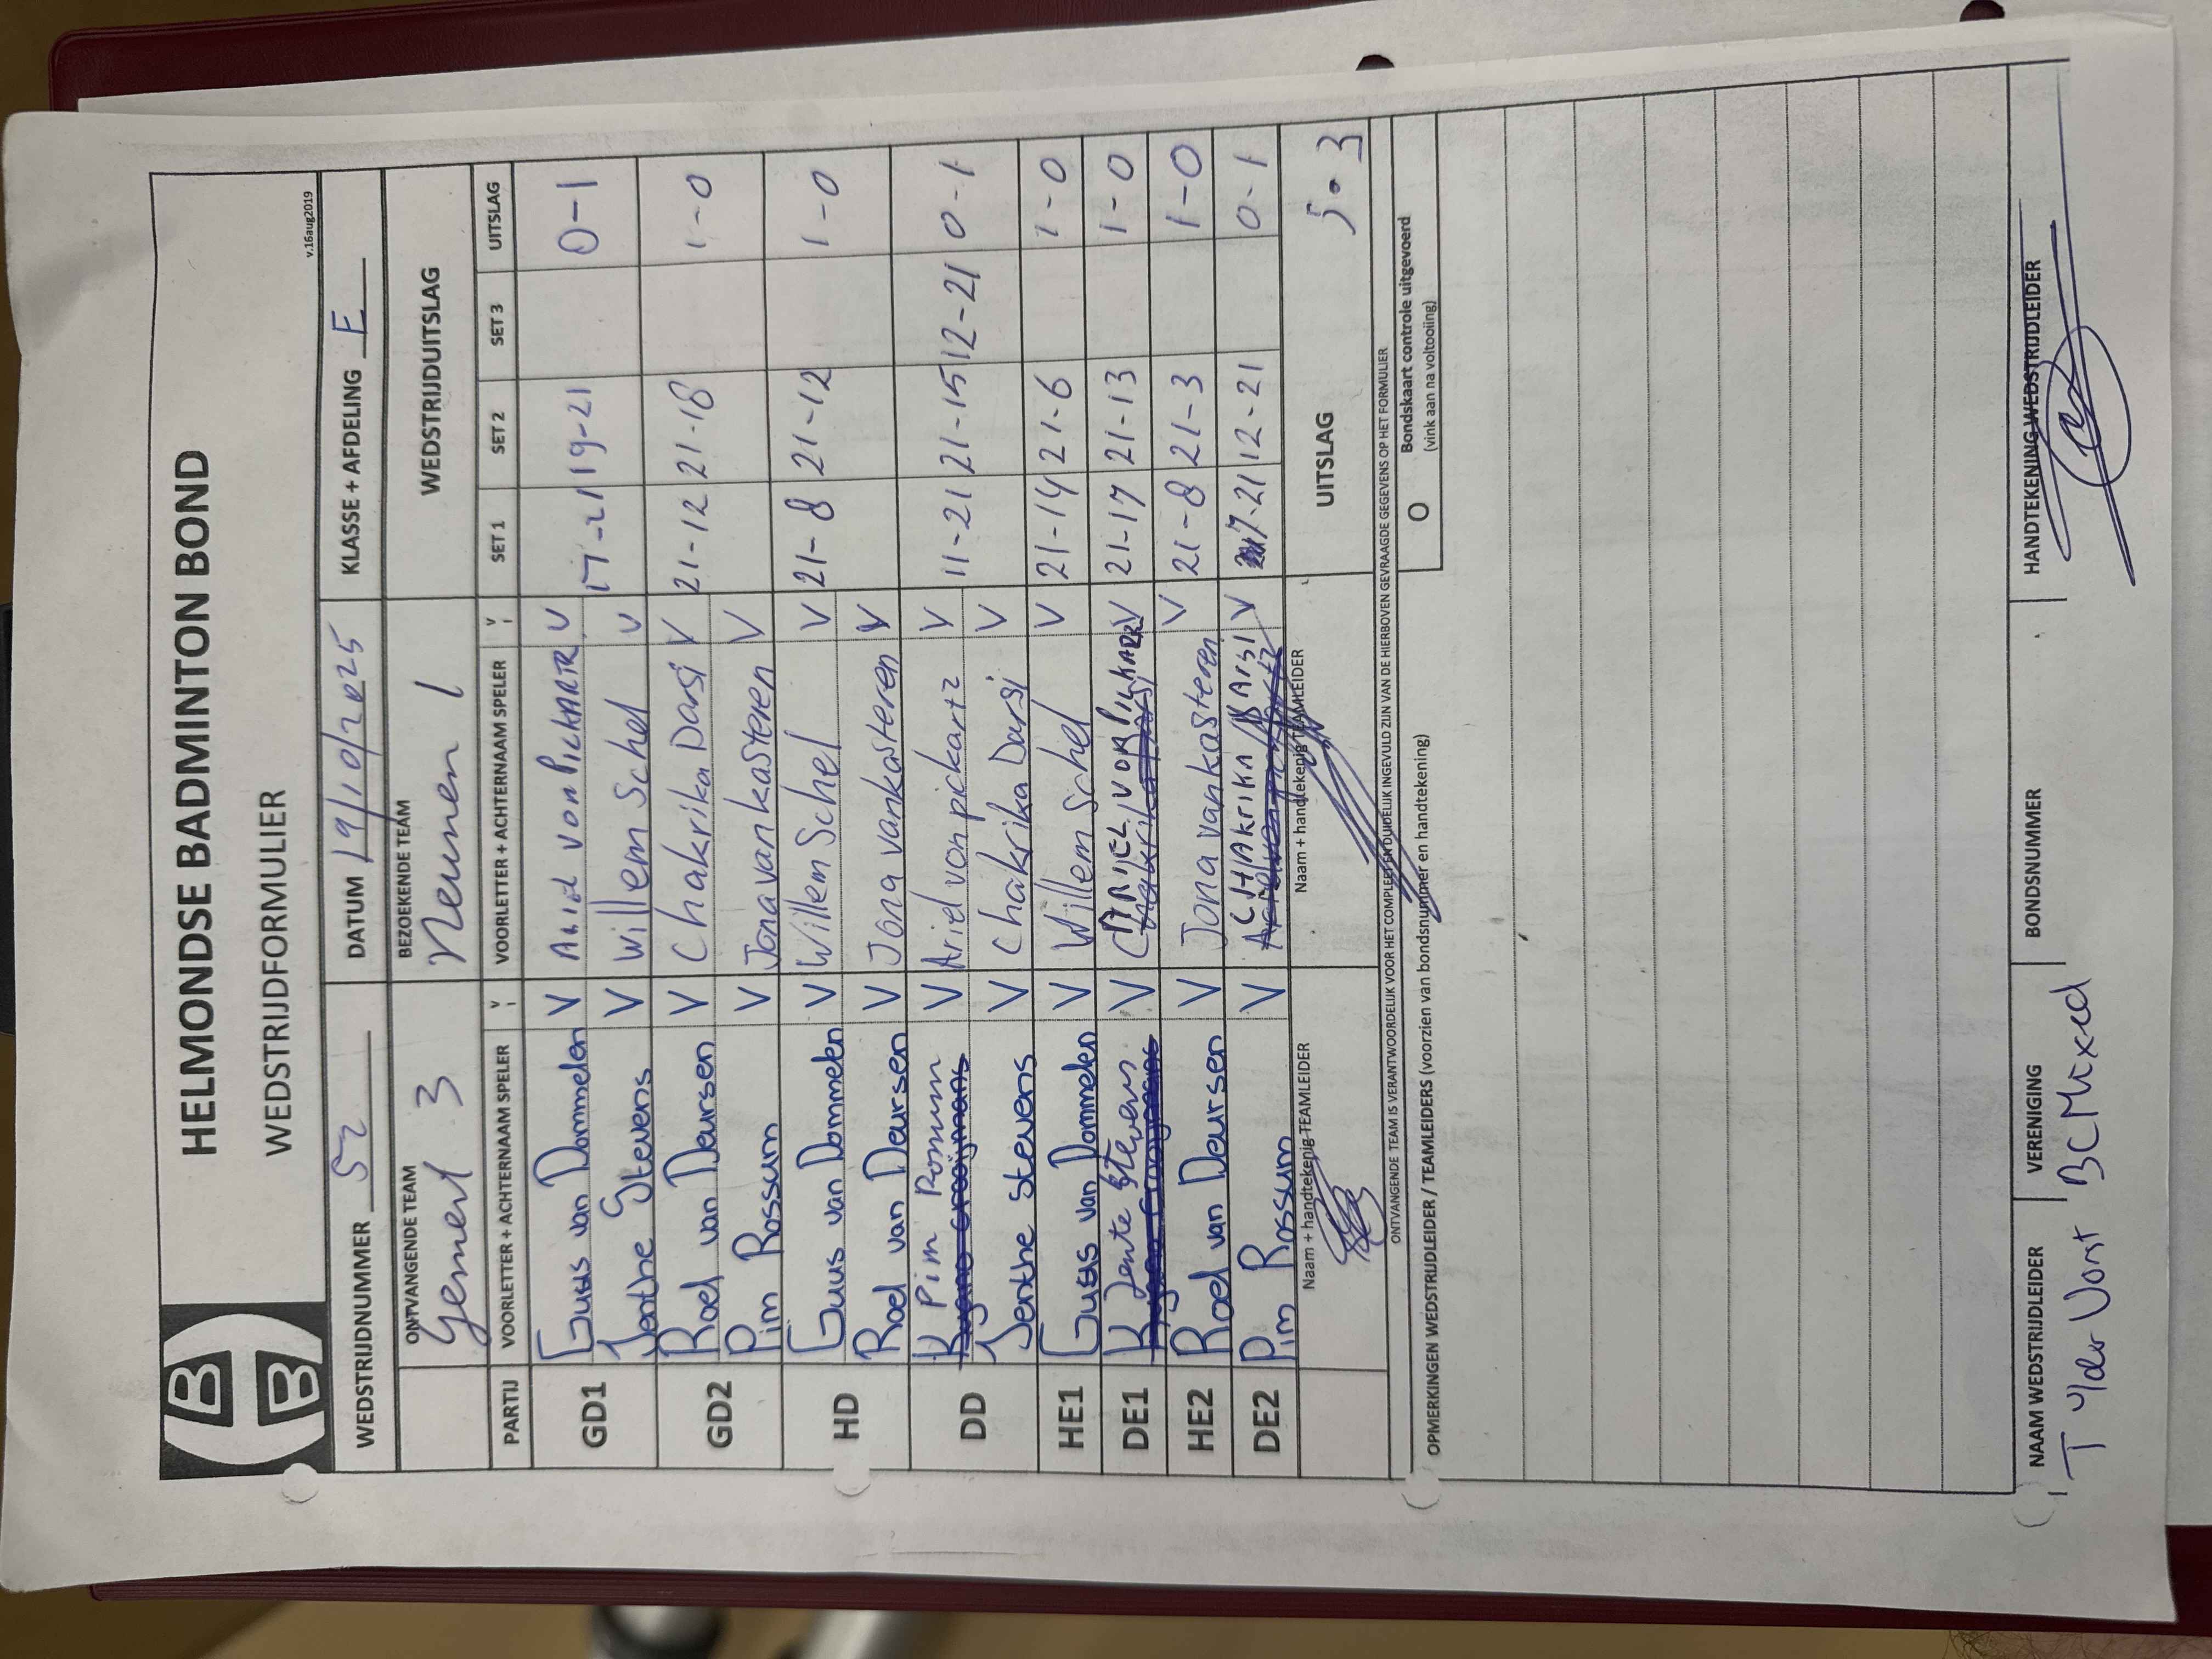 HELMONDSE BADMINTON BOND
WEDSTRIJDFORMULIER
v.16aug2019
WEDSTRIJDNUMMER 52 DATUM 19/10/2025 KLASSE + AFDELING F
ONTVANGENDE TEAM BEZOEKENDE TEAM WEDSTRIJDUITSLAG
Gemert 3 Neunen 1
PARTIJ VOORLETTER + ACHTERNAAM SPELER V VOORLETTER + ACHTERNAAM SPELER V SET 1 SET 2 SET 3 UITSLAG
GD1 Guus van Dommelen V Ariel von PICKARTZ V 17-21 19-21 0-1
Jenthe Stevens V Willem Schel V
GD2 Roel van Deursen V Chakrika Darsi V 21-12 21-18 1-0
Pim Rossum V Jona van kasteren V
HD Guus van Dommelen V Willem Schel V 21-8 21-12 1-0
Roel van Deursen V Jona van kasteren V
DD Pim Rossum V Ariel von pickartz V 11-21 21-15 12-21 0-1
Jenthe Stevens V Chakrika Darsi V
HE1 Guus van Dommelen V Willem Schel V 21-14 21-6 1-0
DE1 Jente Stevens V ARIEL VON PICKARTZ V 21-17 21-13 1-0
HE2 Roel van Deursen V Jona van kasteren V 21-8 21-3 1-0
DE2 Pim Rossum V CHAKRIKA DARSI V 7-21 12-21 0-1
Naam + handtekenig TEAMLEIDER Naam + handtekenig TEAMLEIDER UITSLAG 5-3
ONTVANGENDE TEAM IS VERANTWOORDELIJK VOOR HET COMPLEET EN DUIDELIJK INGEVULD ZIJN VAN DE HIERBOVEN GEVRAAGDE GEGEVENS OP HET FORMULIER
OPMERKINGEN WEDSTRIJDLEIDER / TEAMLEIDERS (voorzien van bondsnummer en handtekening) O Bondskaart controle uitgevoerd
(vink aan na voltooiing)
NAAM WEDSTRIJDLEIDER VERENIGING BONDSNUMMER HANDTEKENING WEDSTRIJDLEIDER
T v/der Vorst BCMixed